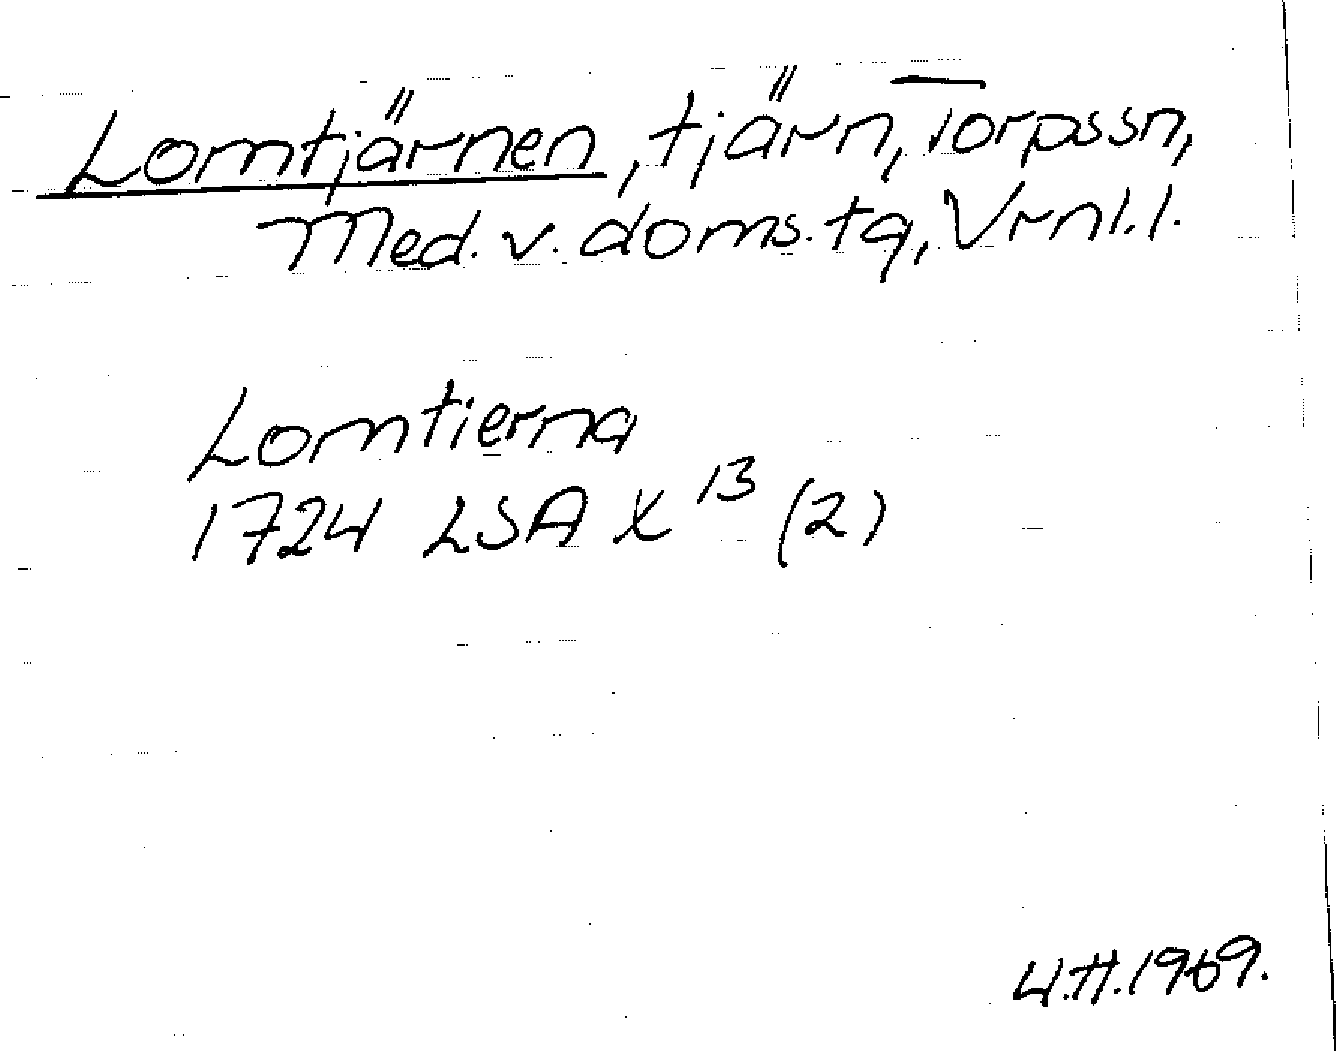 Lomtjärnen, tjärn, Torpssn,
Med. v. doms. tg, Vrml. l.
Lomtierna
1724 LSA X 13 (2)
U.H. 1969.